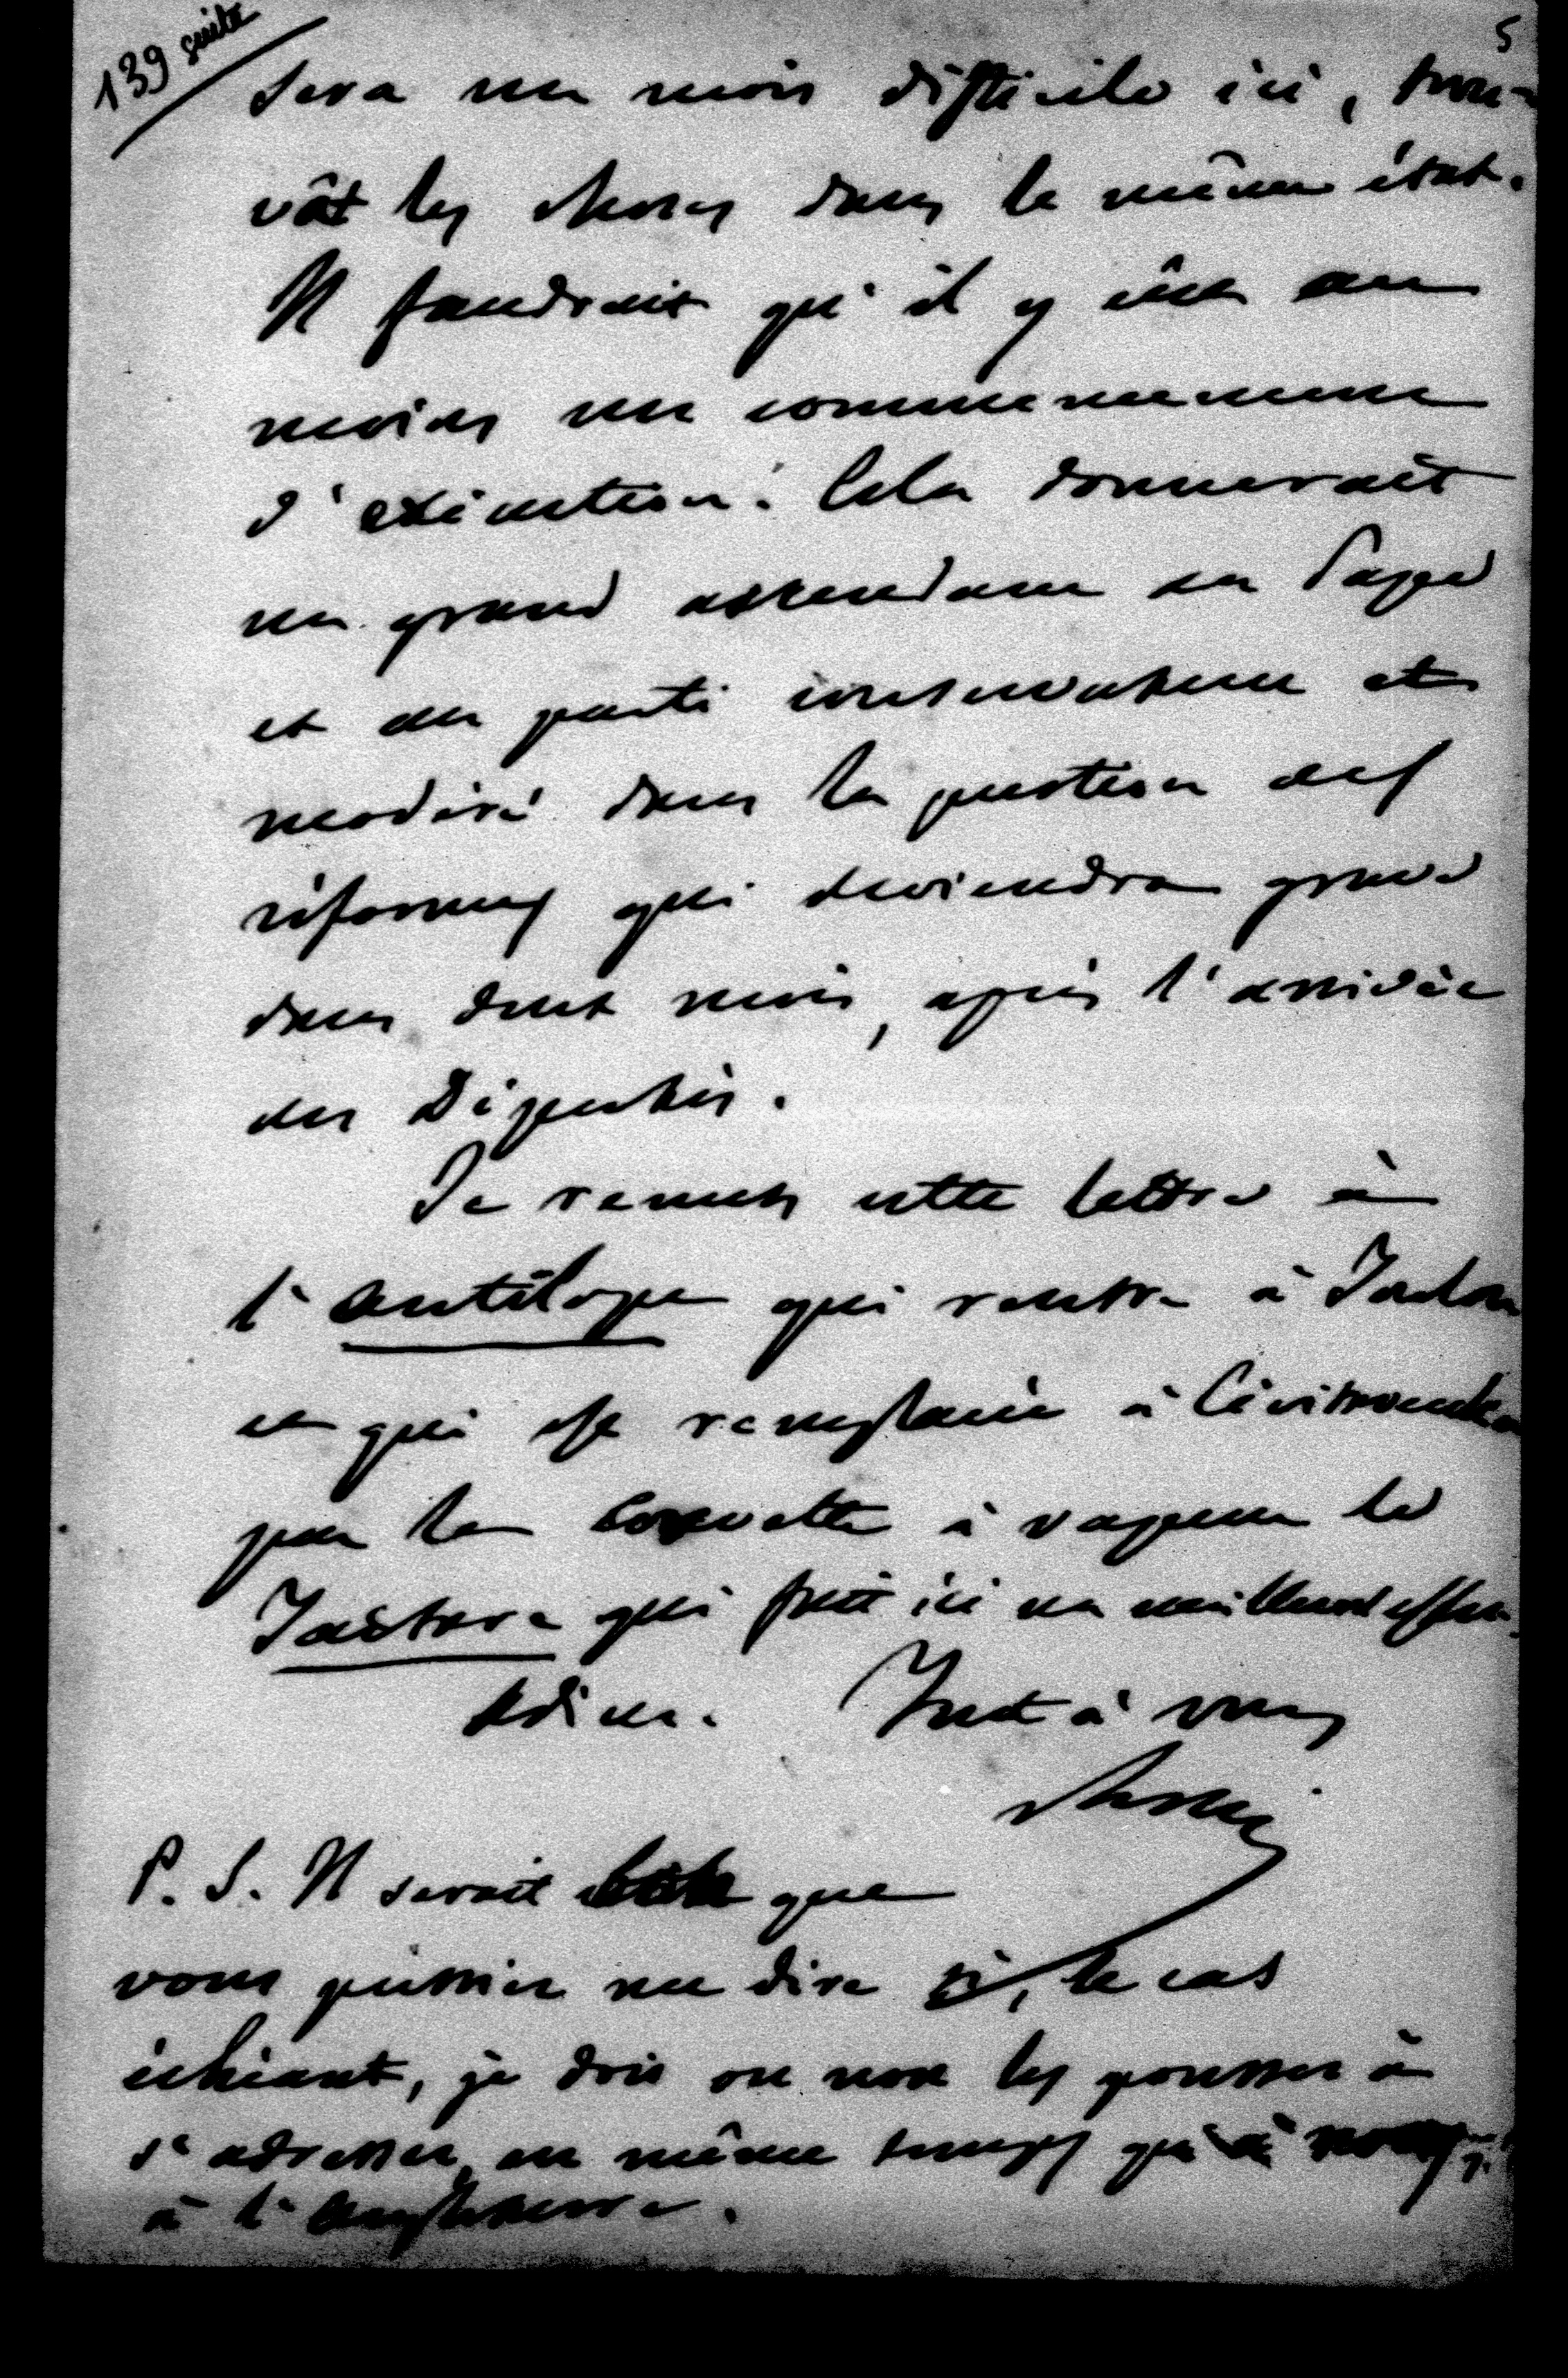 139 suite
5
sera un mois difficile ici, trou-
vât les choses dans le même état.
Il faudrait qu'il y eût au
moins un commencement
d'exécution. Cela donnerait
un grand ascendant au Pape
et au parti conservateur et
modéré dans la question des
réformes qui deviendra grave
dans deux mois, après l'arrivée
des Députés.
Je remets cette lettre à
l'antilope qui rentre à Toulon
et qui est remplacée à Civitavecchia
par la corvette à vapeur le
Tartare qui fait ici un meilleur effet.
Adieu. Tout à vous
Rossi
P. S. Il serait que
vous pussiez me dire si, le cas
échéant, je dois ou non les pousser à
s'adresser, en même temps qu'à nous,
à l'Angleterre.